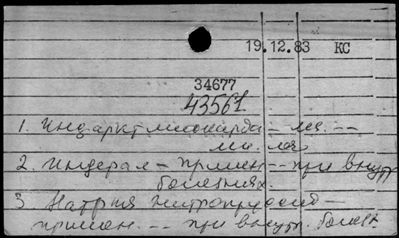 19.12.83 КС
34677
43561
1. Индаркт миокарда – мя. --
ми. мя.
2. Индерал – примен -- при внутр.
болезнях.
3 Натрия нитропруссид –
примен. -- при внутр. болезн.